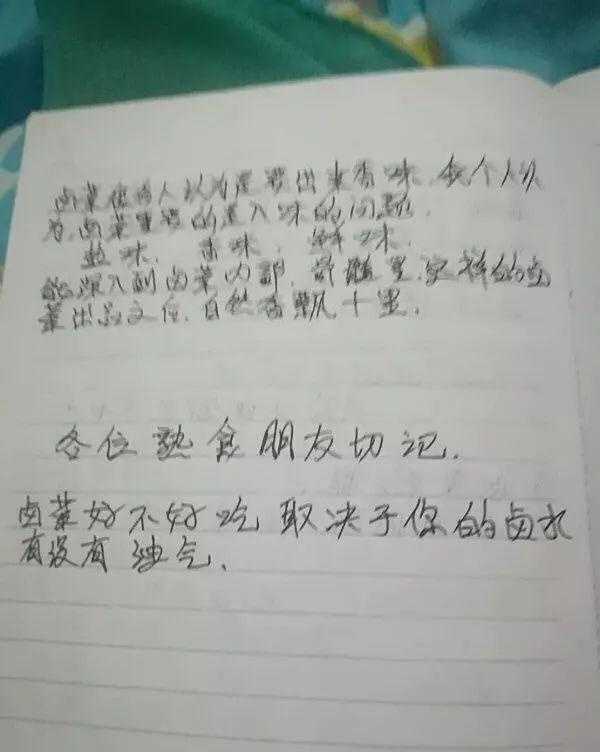 卤菜很多人以为是要出来香味,我个人认
为,卤菜重要的是入味的问题,
盐味,香味,鲜味,
能深入到卤菜内部,骨髓里,这样的卤
菜出品之后,自然香飘十里,
各位熟食朋友切记.
卤菜好不好吃 取决于你的卤水
有没有油气.